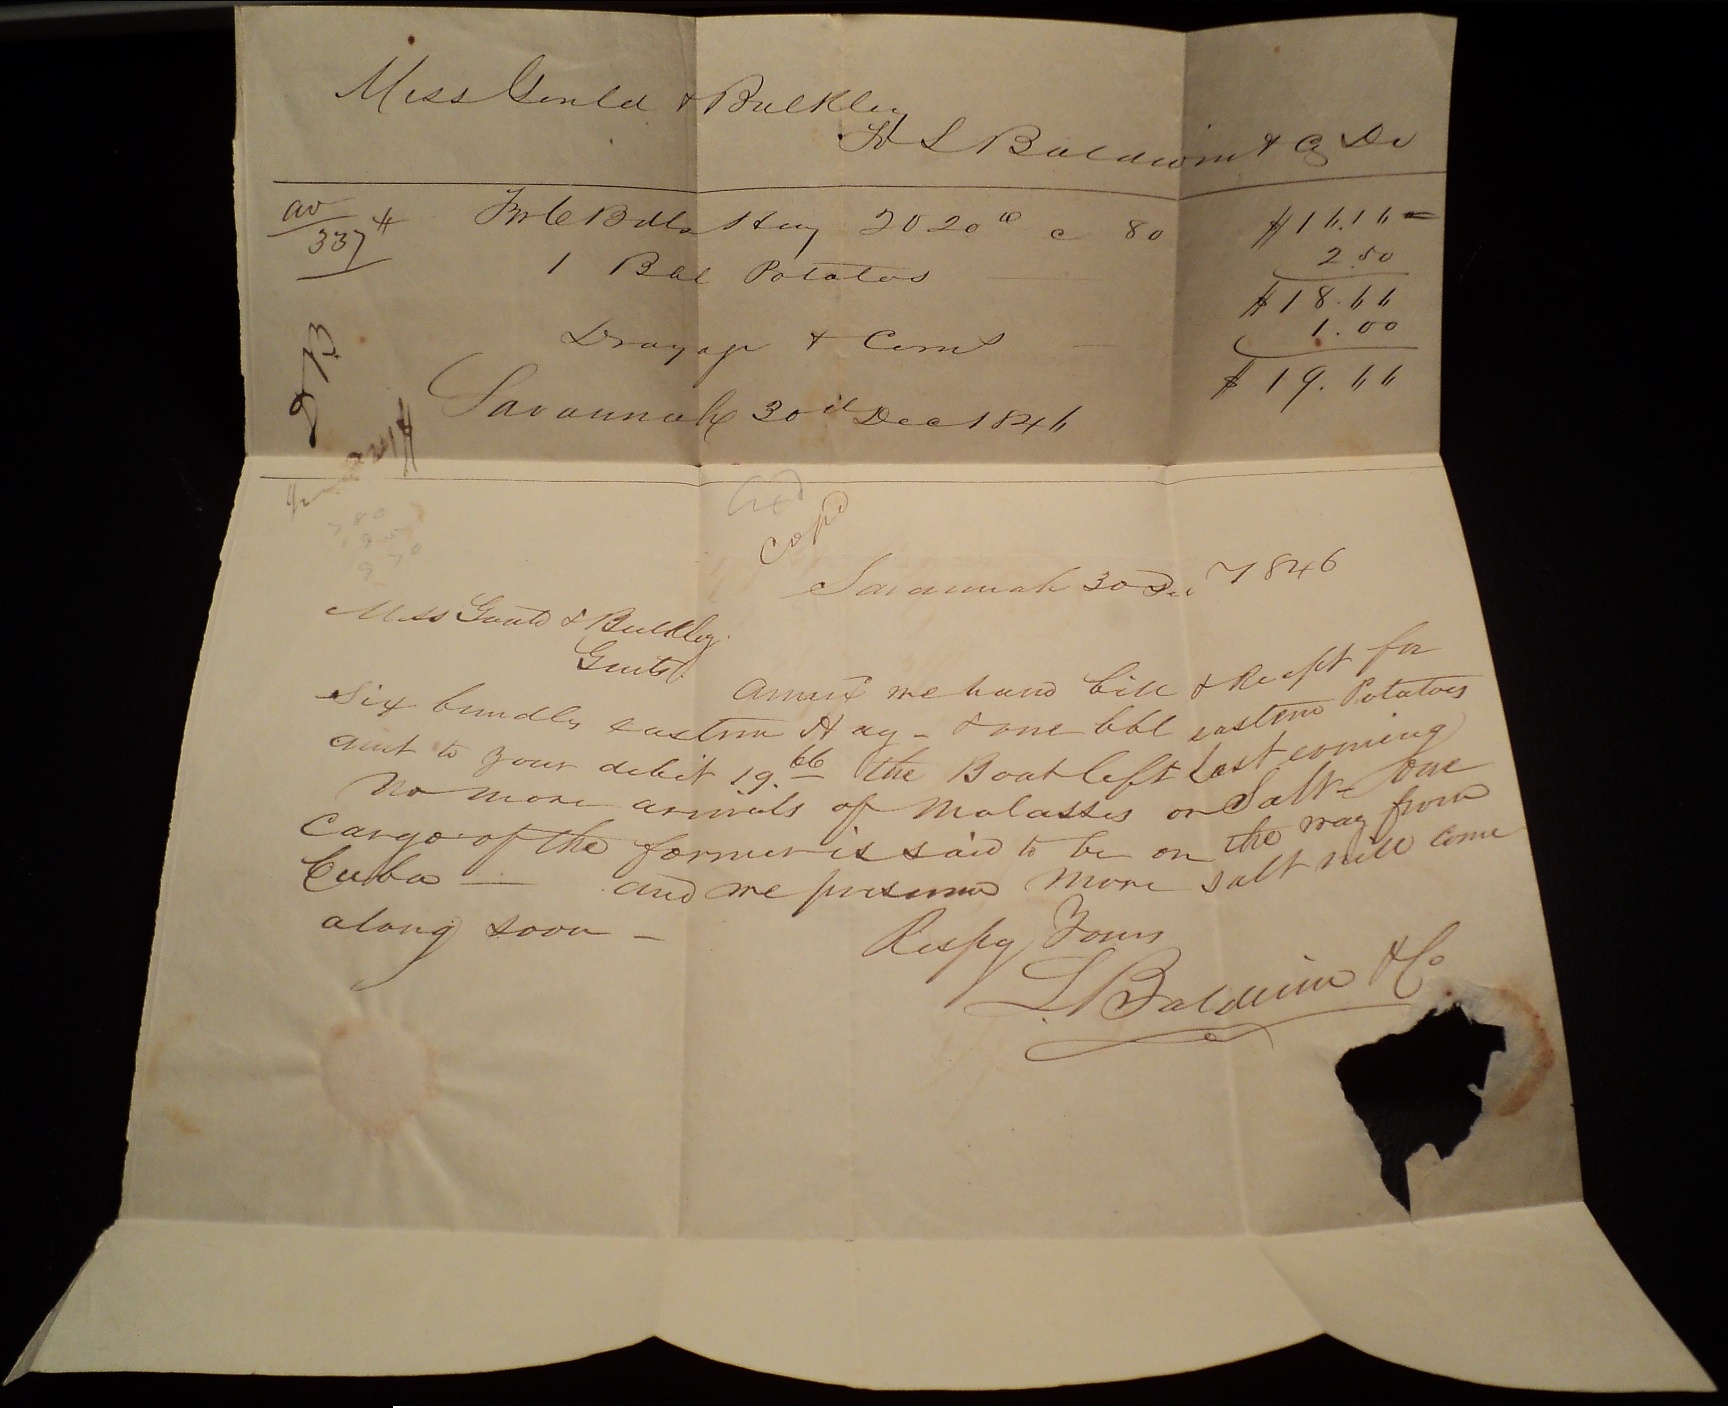 Mess Gould & Bulkley
To L Baldwin & Co Dr
av
337 #
For 6 Bdls Hay 2020 lb c 80
$16.16
1 Bbl Potatoes
2.50
$18.66
Drayage & Coms
1.00
$19.66
Savannah 30th Dec 1846
Copd
Savannah 30 Dec 1846
Mess Gould & Bulkley
Gents
Annexd we hand bill & Recpt for
Six bundles eastern Hay - & one bbl eastern Potatoes
amt to your debit 19.66 the Boat left Last evening
No more arrivals of Molasses or Salt - one
Cargo of the former is said to be on the way from
Cuba — and we presume more salt will come
along soon —
Respy Yours
L Baldwin & Co